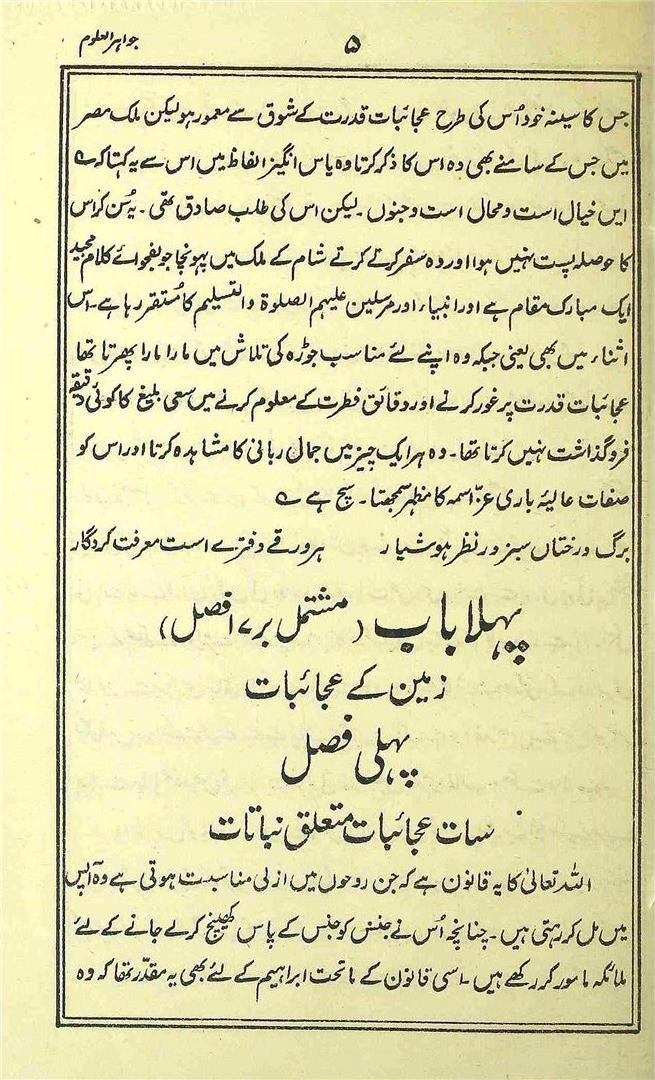 جواہر العلوم
۵
جس کا سینہ خود اُس کی طرح عجائبات قدرت کے شوق سے معمور ہو لیکن ملک مصر
میں جس کے سامنے بھی وہ اس کا ذکر کرتا وہ یاس انگیز الفاظ میں اس سے یہ کہتا کہ ؎
ایں خیال است و محال است و جنوں ۔ لیکن اس کی طلب صادق تھی ۔ یہ سُن کر اس
کا حوصلہ پست نہیں ہوا اور وہ سفر کرتے کرتے شام کے ملک میں پہونچا جو بفحوائے کلام مجید
ایک مبارک مقام ہے اور انبیاء اور مرسلین علیہم الصلوۃ والتسلیم کا مُستقر رہا ہے ۔ اس
اثناء میں بھی یعنی جبکہ وہ اپنے لئے مناسب جوڑہ کی تلاش میں مارا مارا پھرتا تھا
عجائبات قدرت پر غور کرنے اور دقائق فطرت کے معلوم کرنے میں سعی بلیغ کا کوئی دقیقہ
فروگذاشت نہیں کرتا تھا ۔ وہ ہر ایک چیز میں جمال ربانی کا مشاہدہ کرتا اور اس کو
صفات عالیۂ باری عزّ اسمہ کا مظہر سمجھتا ۔ سچ ہے ؎
برگ درختاں سبز در نظر ہوشیار ہر ورقے دفترے است معرفت کردگار
پہلا باب (مشتمل بر ۱۷ فصل)
زمین کے عجائبات
پہلی فصل
سات عجائبات متعلق نباتات
اللہ تعالیٰ کا یہ قانون ہے کہ جن روحوں میں ازلی مناسبت ہوتی ہے وہ آپس
میں مل کر رہتی ہیں ۔ چنانچہ اُس نے جنس کو جنس کے پاس کھینچ کر لے جانے کے لئے
ملائکہ مامور کر رکھے ہیں ۔ اسی قانون کے ماتحت ابراہیم کے لئے بھی یہ مقدّر تھا کہ وہ